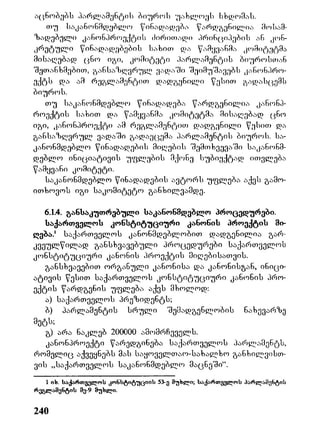 აცნობებს პარლამენტის ბიუროს უახლოეს სხდომას.
თუ საკანონმდებლო წინადადება წარდგენილია მოსამ-
ზადებელი კანონპროექტის ძირითადი პრინციპების ან კონ-
კრეტული წინადადებების სახით და წამყვანმა კომიტეტმა
მისაღებად ცნო იგი, კომიტეტი პარლამენტის ბიუროსთან
შეთანხმებით, განსაზღვრულ ვადაში შეიმუშავებს კანონპრო-
ექტს და ამ რეგლამენტით დადგენილი წესით გადასცემს
ბიუროს.
თუ საკანონმდებლო წინადადება წარდგენილია კანონპ-
როექტის სახით და წამყვანმა კომიტეტმა მისაღებად ცნო
იგი, კანონპროექტი ამ რეგლამენტით დადგენილი წესით და
განსაზღვრულ ვადაში გადაეცემა პარლამენტის ბიუროს. სა-
კანონმდებლო წინადადების მიღების შემთხვევაში საკანონმ-
დებლო ინიციატივის უფლების მქონე სუბიექტად ითვლება
წამყვანი კომიტეტი.
საკანონმდებლო წინადადების ავტორს უფლება აქვს გამო-
ითხოვოს იგი საკომიტეტო განხილვამდე.
6.1.4. განსაკუთრებული საკანონმდებლო პროცედურები.
საქართველოს კონსტიტუციური კანონის პროექტის მი-
ღება.¹ საქართველოს კანონმდებლობით დადგენილია გარ-
კვეულწილად განსხვავებული პროცედურები საქართველოს
კონსტიტუციური კანონის პროექტის მიღებისათვის.
განსხვავებით ორგანული კანონისა და კანონისგან, ინიცი-
ატივის წესით საქართველოს კონსტიტუციური კანონის პრო-
ექტის წარდგენის უფლება აქვს მხოლოდ:
ა) საქართველოს პრეზიდენტს;
ბ) პარლამენტის სრული შემადგენლობის ნახევარზე
მეტს;
გ) არა ნაკლებ 200000 ამომრჩეველს.
კანონპროექტი წარედგინება საქართველოს პარლამენტს,
რომელიც აქვეყნებს მას საყოველთაო-სახალხო განხილვისთ-
ვის „საქართველოს საკანონმდებლო მაცნეში“.
1 იხ. საქართველოს კონსტიტუციის 53-ე მუხლი; საქართველოს პარლამენტის
რეგლამენტის მე-9 მუხლი.
240